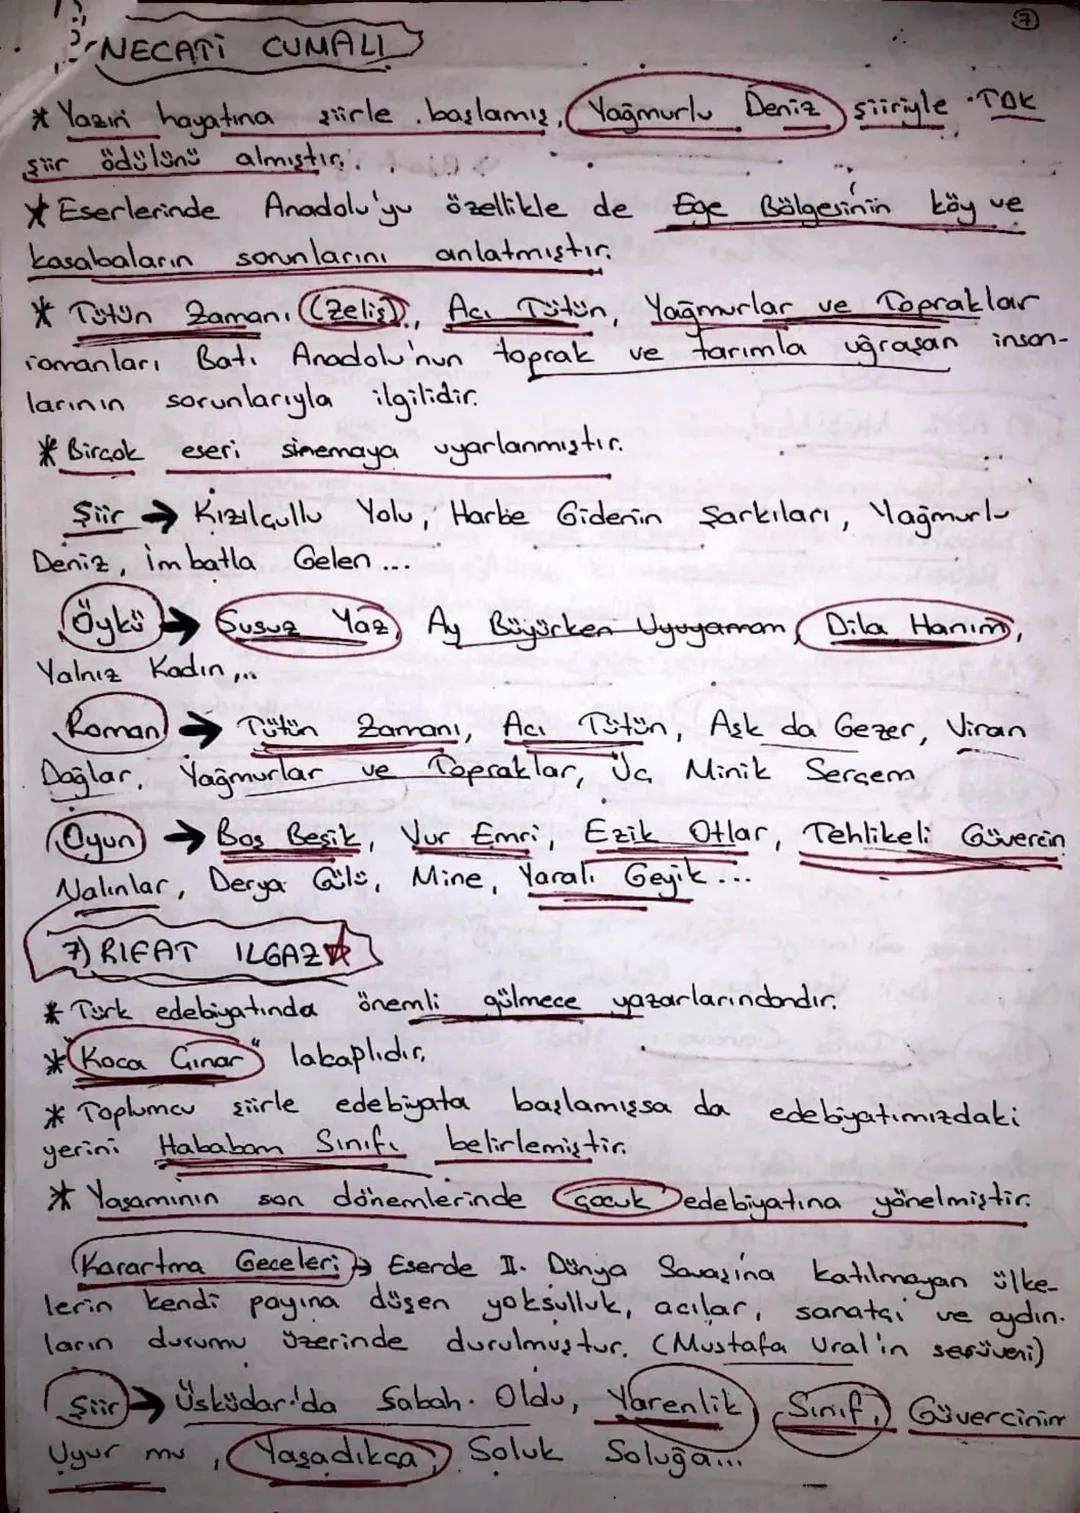 7
NECATİ CUMALI
* Yazın hayatına şiirle başlamış, Yağmurlu Deniz şiiriyle TDK
şiir ödülünü almıştır.
* Eserlerinde Anadolu'yu özellikle de Ege Bölgesinin köy ve
kasabaların sorunlarını anlatmıştır.
* Tütün Zamanı (Zeliş), Acı Tütün, Yağmurlar ve Topraklar
romanları Batı Anadolu'nun toprak ve tarımla uğraşan insan-
larının sorunlarıyla ilgilidir.
* Birçok eseri sinemaya uyarlanmıştır.
Şiir → Kızılçullu Yolu, Harbe Gidenin Şarkıları, Yağmurlu
Deniz, İmbatla Gelen...
Öykü → Susuz Yaz, Ay Büyürken Uyuyamam, Dila Hanım,
Yalnız Kadın,..
Roman → Tütün Zamanı, Acı Tütün, Aşk da Gezer, Viran
Dağlar, Yağmurlar ve Topraklar, Üç Minik Serçem
Oyun → Boş Beşik, Vur Emri, Ezik Otlar, Tehlikeli Güvercin
Nalınlar, Derya Gülü, Mine, Yaralı Geyik...
7) RIFAT ILGAZ
* Türk edebiyatında önemli gülmece yazarlarındandır.
* "Koca Çınar" lakaplıdır.
* Toplumcu şiirle edebiyata başlamışsa da edebiyatımızdaki
yerini Hababam Sınıfı belirlemiştir.
* Yaşamının son dönemlerinde çocuk edebiyatına yönelmiştir.
Karartma Geceleri → Eserde II. Dünya Savaşına katılmayan ülke-
lerin kendi payına düşen yoksulluk, acılar, sanatçı ve aydın-
ların durumu üzerinde durulmuştur. (Mustafa Ural'ın serüveni)
Şiir → Üsküdar'da Sabah Oldu, Yarenlik, Sınıf, Güvercinim
Uyur mu, Yaşadıkça, Soluk Soluğa...